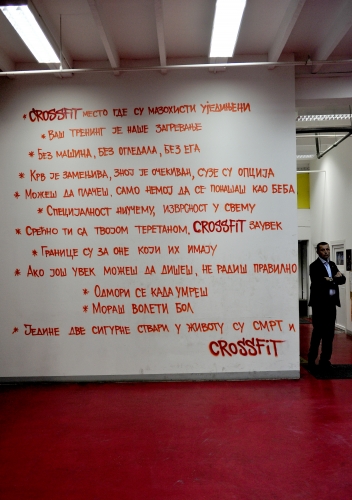 * CROSSFIT МЕСТО ГДЕ СУ МАЗОХИСТИ УЈЕДИЊЕНИ
* ВАШ ТРЕНИНГ ЈЕ НАШЕ ЗАГРЕВАЊЕ
* БЕЗ МАШИНА, БЕЗ ОГЛЕДАЛА, БЕЗ ЕГА
* КРВ ЈЕ ЗАМЕНЉИВА, ЗНОЈ ЈЕ ОЧЕКИВАН, СУЗЕ СУ ОПЦИЈА
* МОЖЕШ ДА ПЛАЧЕШ, САМО НЕМОЈ ДА СЕ ПОНАШАШ КАО БЕБА
* СПЕЦИЈАЛНОСТ НИУЧЕМУ, ИЗВРСНОСТ У СВЕМУ
* СРЕЋНО ТИ СА ТВОЈОМ ТЕРЕТАНОМ, CROSSFIT ЗАУВЕК
* ГРАНИЦЕ СУ ЗА ОНЕ КОЈИ ИХ ИМАЈУ
* АКО ЈОШ УВЕК МОЖЕШ ДА ДИШЕШ, НЕ РАДИШ ПРАВИЛНО
* ОДМОРИ СЕ КАДА УМРЕШ
* МОРАШ ВОЛЕТИ БОЛ
* ЈЕДИНЕ ДВЕ СИГУРНЕ СТВАРИ У ЖИВОТУ СУ СМРТ И
CROSSFIT